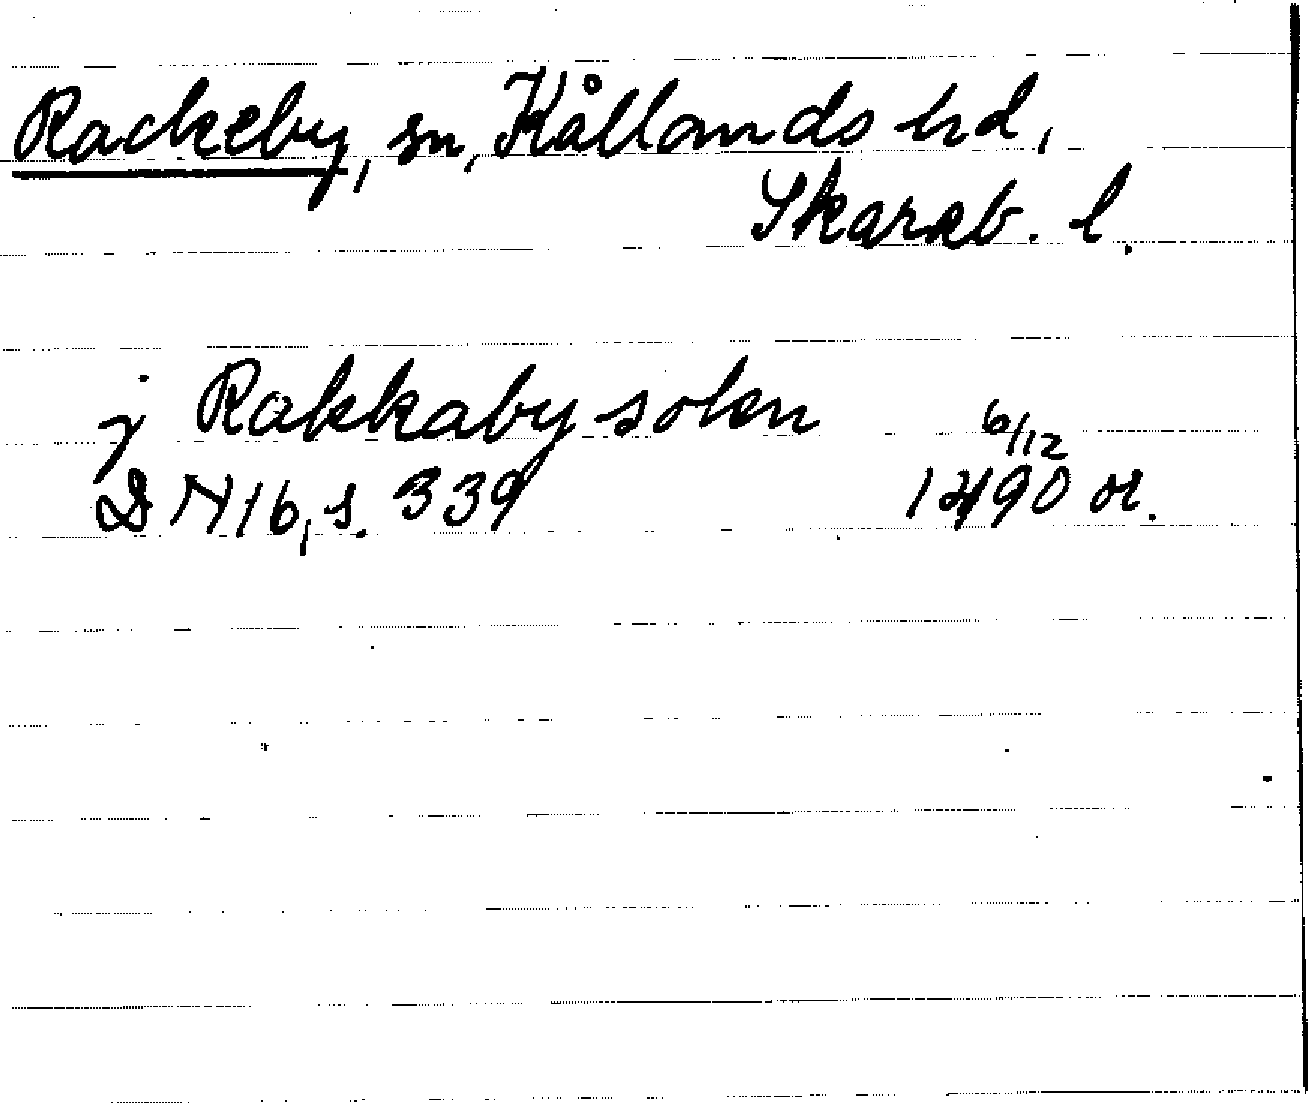 Rackeby, sn, Kållands hd,
Skarab. l.
j Rakkaby sokn 6/12
DN 16, s. 339 1490 or.